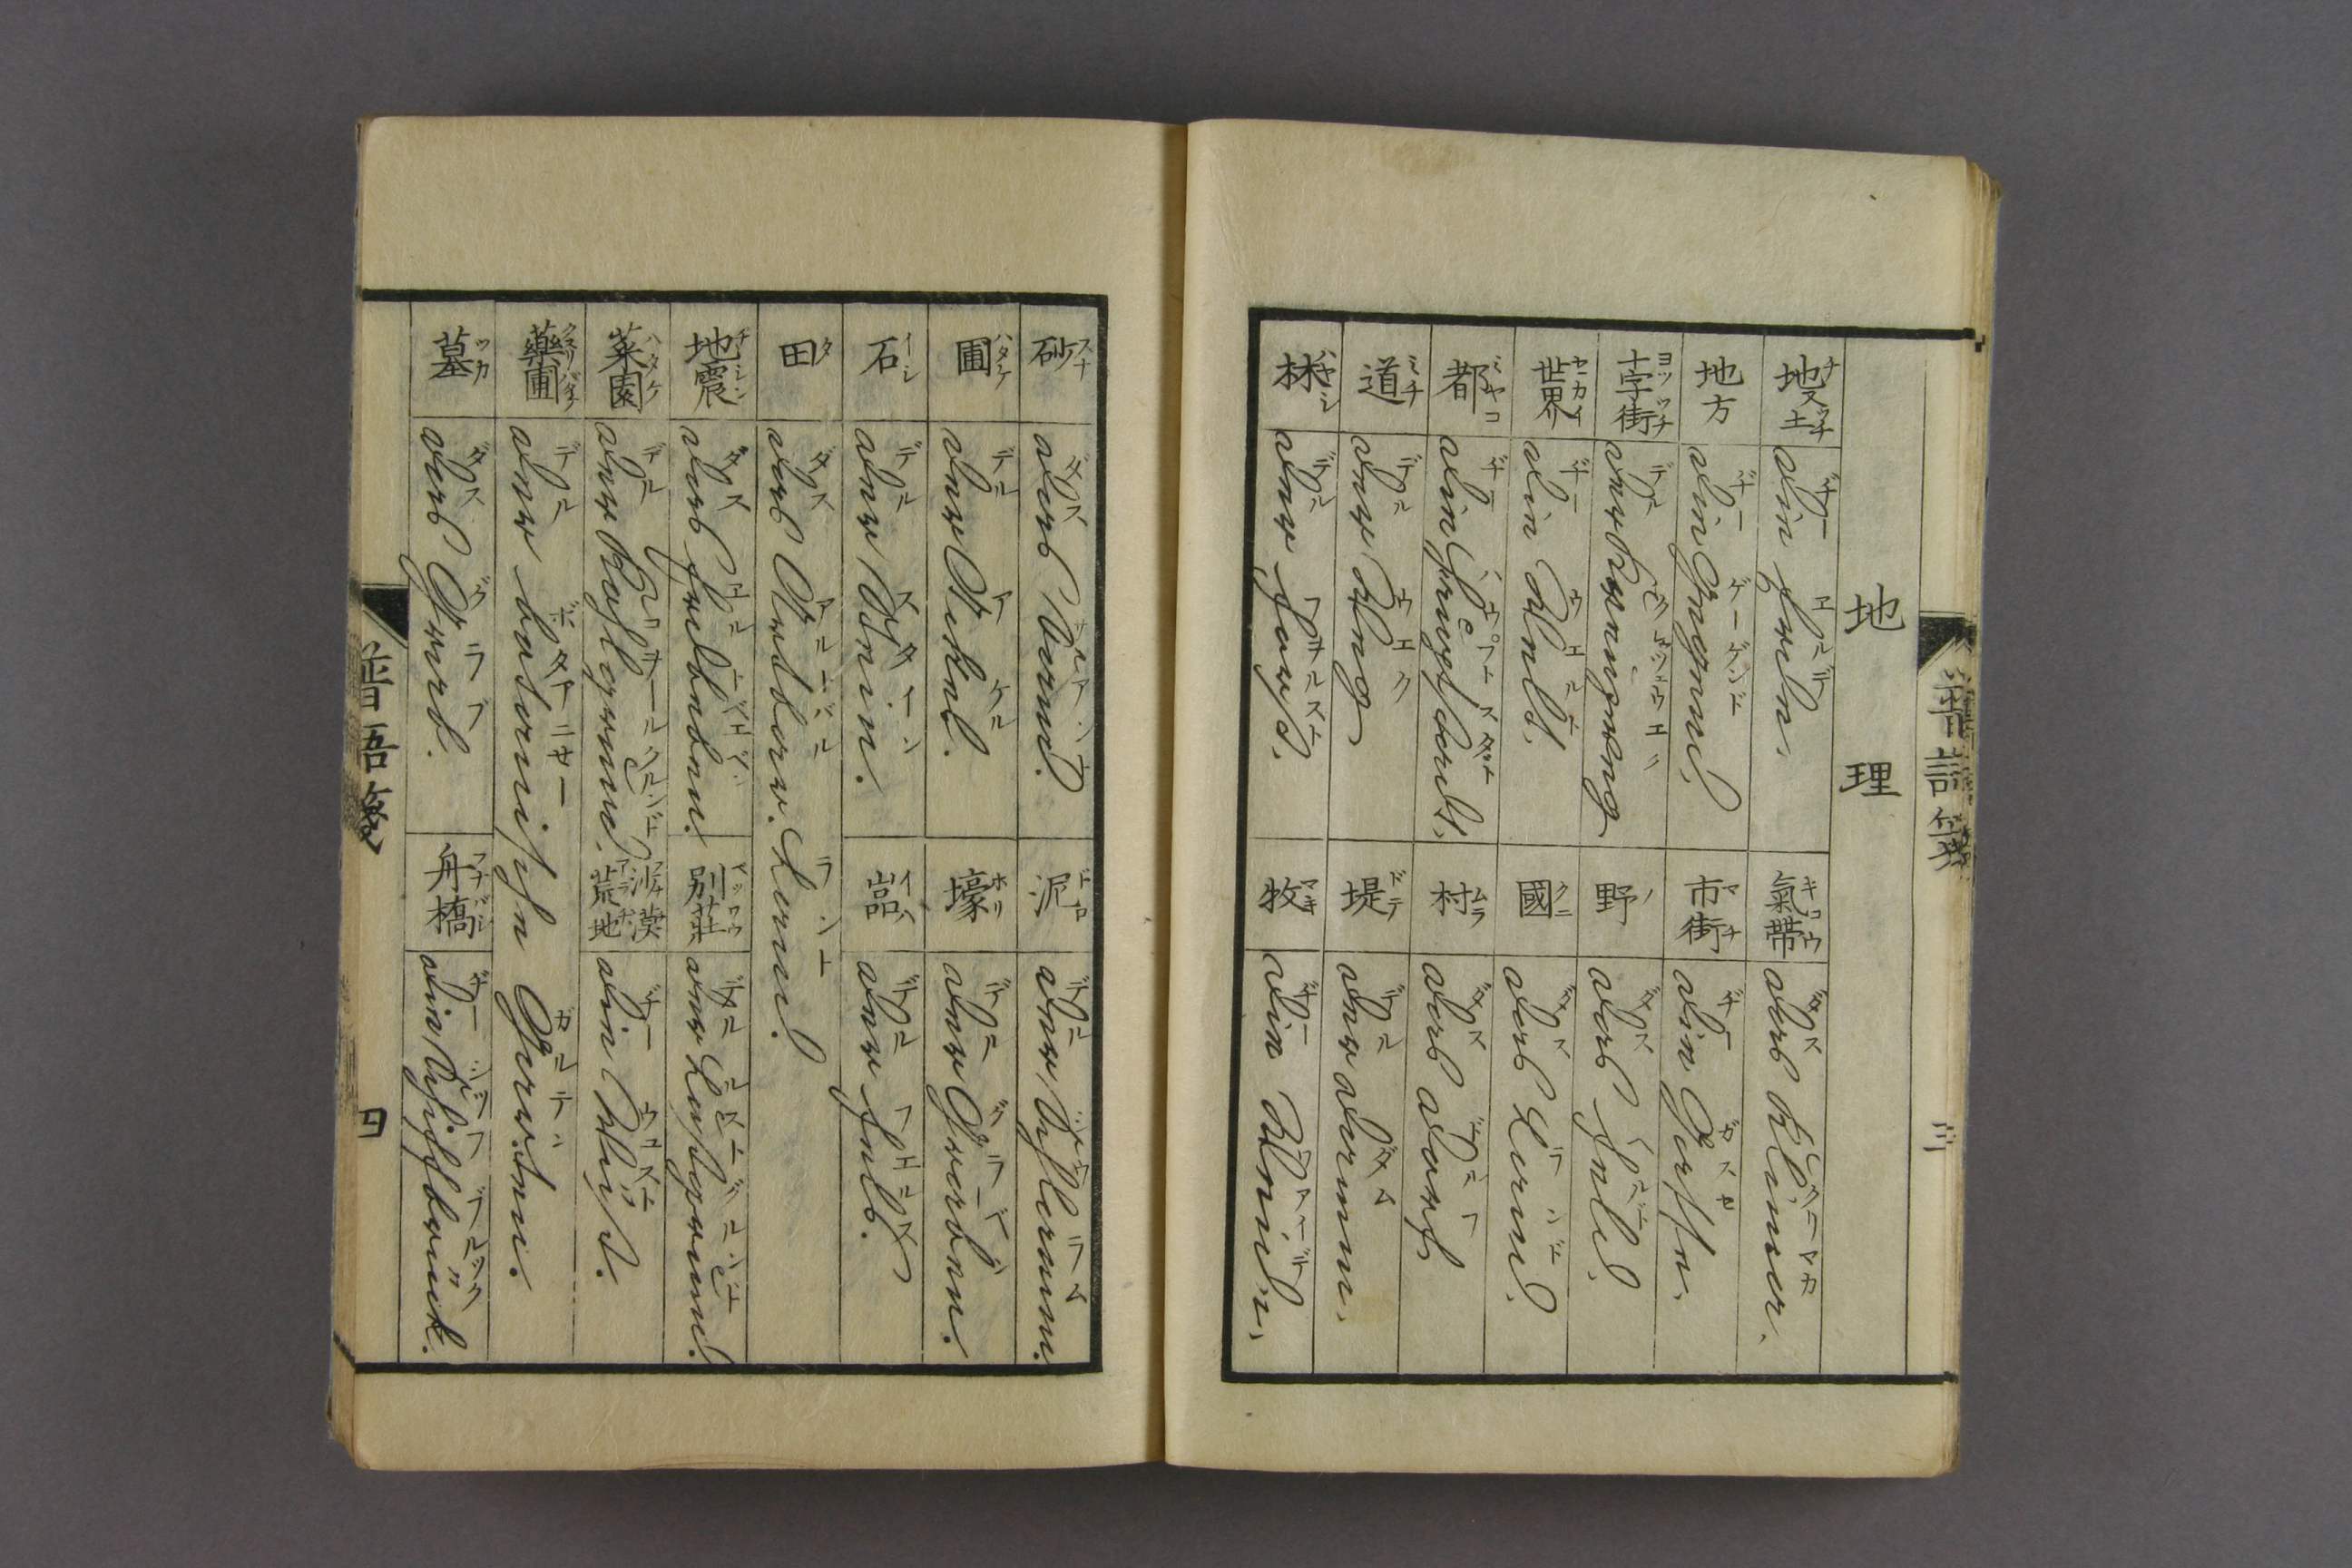 普語箋
三
地理
地又土 チ ツチ die Erde. ヂー エルデ
氣帶 キコウ das Klima. ダス クリーマカ
地方 die Gegend. ヂー ゲーゲント
市街 マチ die Gasse. ヂー ガスセ
十字街 ヨツツヂ der Kreuzweg デル クロツウエク
野 ノ das Feld. ダス フエルド
世界 セカイ die Welt. ヂー ウエルト
國 クニ das Land. ダス ランド
都 ミヤコ die Hauptstadt. ヂー ハウプトスタット
村 ムラ das Dorf ダス ドルフ
道 ミチ der Weg デル ウエク
堤 ドテ der Damm. デル ダム
林 ハヤシ der Forst. デル フヲルスト
牧 マキ die Weide. ヂー ワイデ
砂 スナ das Sand. ダス サアンド
泥 ドロ der Schlamm. デル シラム
圃 ハタケ der Akel. デル アケル
壕 ホリ der Graben. デル グラーベン
石 イシ der Stein. デル スタイン
嵓 イハ der Fels. デル フエルス
田 タ das Artbar. Land. ダス アルトバル ラント
地震 チシン das Erdbeben. ダス エルドベエベン
別荘 ベツサウ der Lustgrund. デル ルストグルンド
菜園 ハタケ der Kohlgrund. デル コヲールグルンド
沙漠 荒地 アラチ die Wüst. ヂー ウエスト
藥圃 クスリバタケ der botanische Garten. デル ボタアニセー ガルテン
墓 ツカ das Grab. ダス グラブ
舟橋 フナバシ die Schiffbrück. ヂー シツフ ブルック
普語箋
四